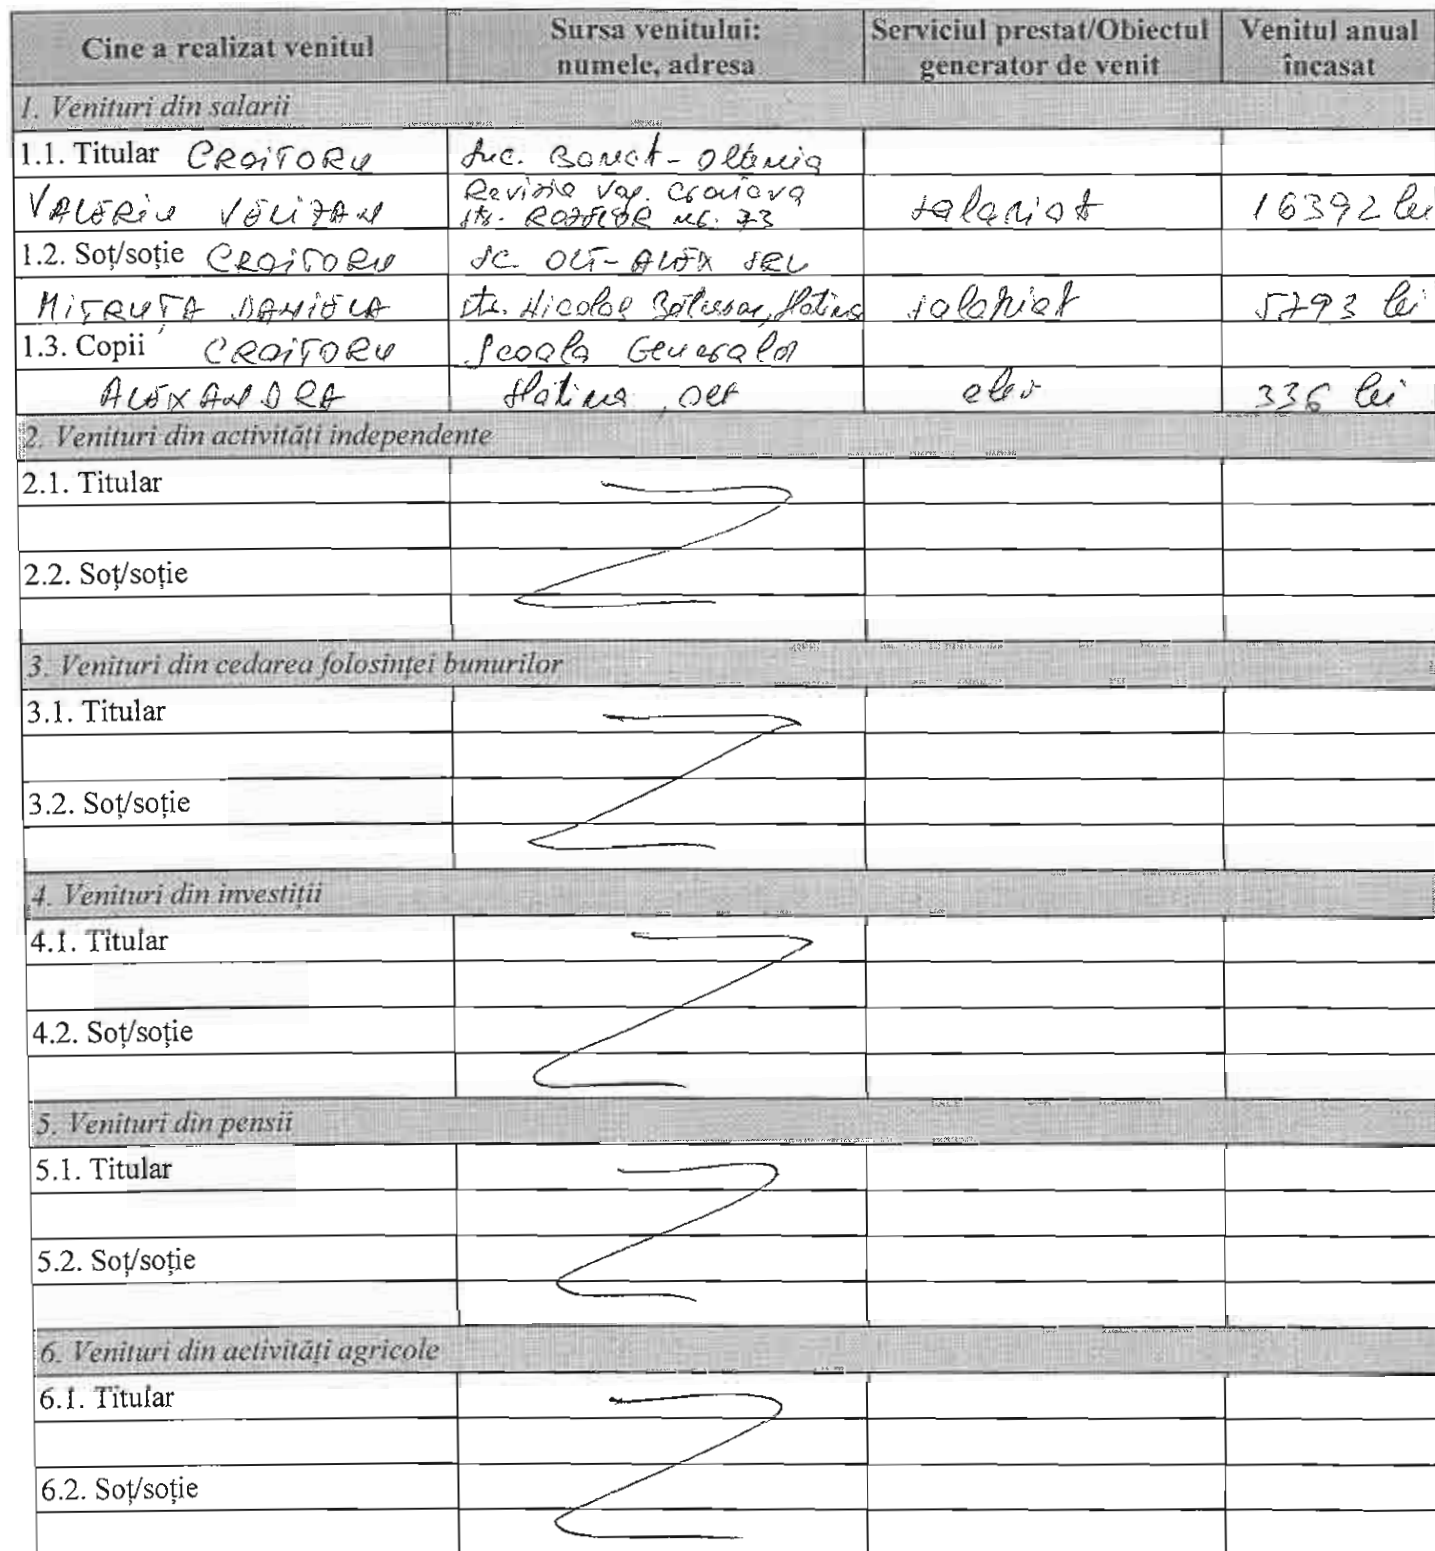 Cine a realizat venitul Sursa venitului: numele, adresa Serviciul prestat/Obiectul generator de venit Venitul anual încasat
1. Venituri din salarii
1.1. Titular CROITORU Suc. Banat-Oltenia
VALERIU VELIZAN Revizia Vag. Craiova str. NR. 73 salariat 16392 lei
1.2. Soț/soție CROITORU SC. OLT-ALEX SRL
MITRUȚA DANIELA str. Nicolae Bălcescu, Slatina salariat 5793 lei
1.3. Copii CROITORU Scoala Generala
ALEXANDRA Slatina, Olt elev 336 lei
2. Venituri din activități independente
2.1. Titular
2.2. Soț/soție
3. Venituri din cedarea folosinței bunurilor
3.1. Titular
3.2. Soț/soție
4. Venituri din investiții
4.1. Titular
4.2. Soț/soție
5. Venituri din pensii
5.1. Titular
5.2. Soț/soție
6. Venituri din activități agricole
6.1. Titular
6.2. Soț/soție